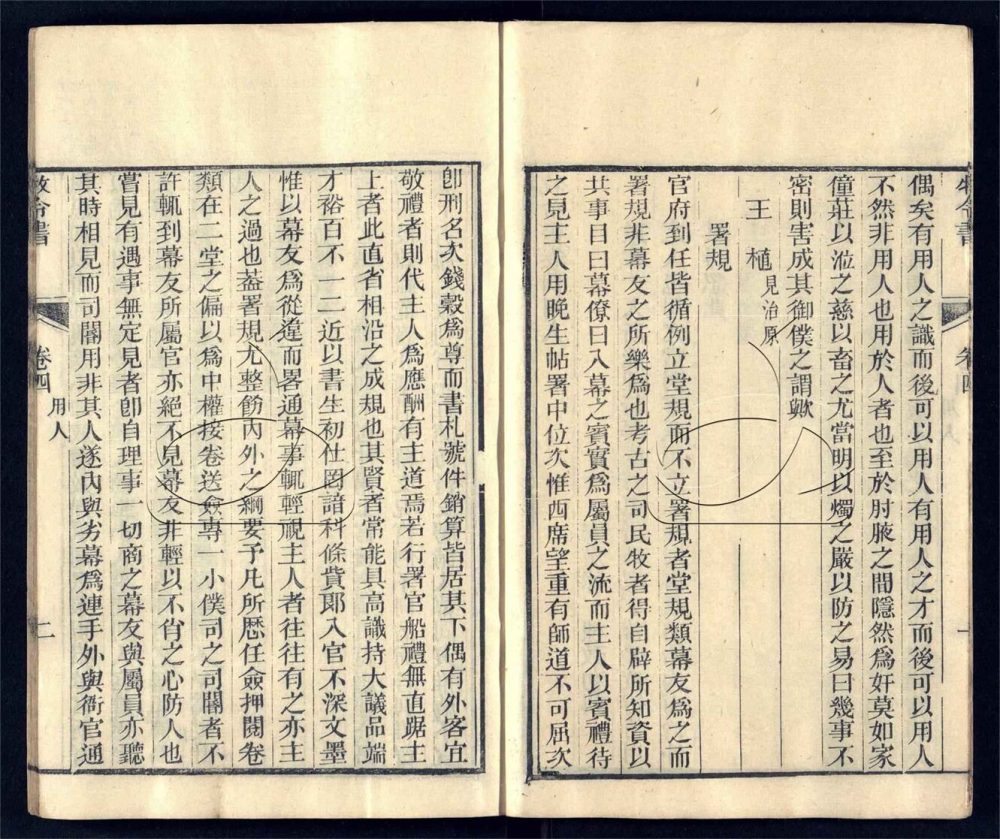 偶矣有用人之識而後可以用人有用人之才而後可以用人
不然非用人也用於人者也至於肘腋之間隱然為奸莫如家
僮莊以涖之慈以畜之尤當明以燭之嚴以防之易曰幾事不
密則害成其御僕之謂歟
王植見治原
署規
官府到任皆循例立堂規而不立署規者堂規類幕友為之而
署規非幕友之所樂為也考古之司民牧者得自辟所知資以
共事目曰幕僚曰入幕之賓實為屬員之流而主人以賓禮待
之見主人用晚生帖署中位次惟西席望重有師道不可屈次
卽刑名次錢穀為尊而書札號件銷算皆居其下偶有外客宜
敬禮者則代主人為應酬有主道焉若行署官船禮無直踞主
上者此直省相沿之成規也其賢者常能具高識持大議品端
才裕百不一二近以書生初仕罔諳科條貲郎入官不深文墨
惟以幕友為從違而畧通幕事輒輕視主人者往往有之亦主
人之過也葢署規尤整飭內外之綱要予凡所歷任僉押閱卷
類在二堂之偏以為中權按卷送僉專一小僕司之司閽者不
許輒到幕友所屬官亦絕不見幕友非輕以不肖之心防人也
嘗見有遇事無定見者卽自理事一切商之幕友與屬員亦聽
其時相見而司閽用非其人遂內與劣幕為連手外與衙官通
牧令書
卷四
用人
二